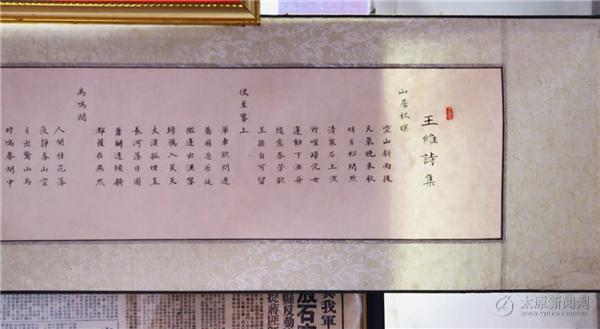 王維詩集
山居秋暝
空山新雨後
天氣晚來秋
明月松間照
清泉石上流
竹喧歸浣女
蓮動下漁舟
隨意春芳歇
王孫自可留
使至塞上
單車欲問邊
屬國過居延
徵蓬出漢塞
歸雁入胡天
大漠孤煙直
長河落日圓
蕭關逢候騎
都護在燕然
鳥鳴澗
人閒桂花落
夜靜春山空
月出驚山鳥
時鳴春澗中
我軍
縣反動
太原新闻网
www.tynews.com.cn